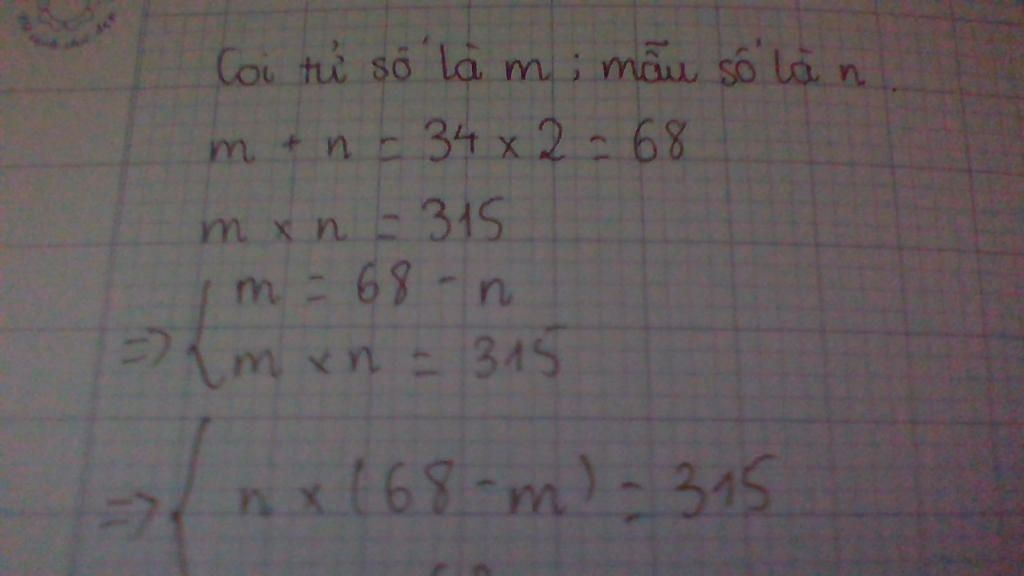 Coi tử số là m ; mẫu số là n.
m + n = 34 × 2 = 68
m × n = 315
m = 68 - n
=> { m × n = 315
=> { n × (68 - m) = 315